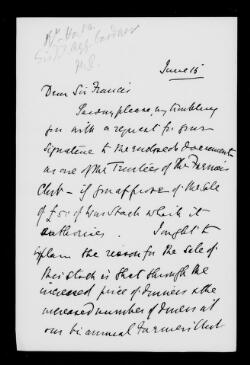 June 15
Dear Sir Francis
Excuse please, my troubling
you with a request for your
signature to the enclosed document
as one of the Trustees of the Farmers
Club – if you approve of the sale
of £50 of War Stock which it
authorises. I ought to
explain the reason for the sale of
this stock is that through the
increased price of dinners & the
increased number of diners at
our bi annual Farmers Club